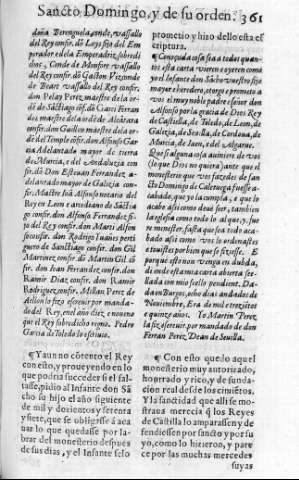 Sancto Domingo, y de su orden. 361
doña Berenguela, conde, vassallo
del Rey confir. dō Loys fijo del Em-
perador e dela Emperadriz sobredi
chos, Conde de Monfort vassallo
del Rey confir. dō Gaston Vizconde
de Beart vassallo del Rey confir.
don Pelay Perez maestre dela or-
dē de Sāctiago cōfir. dō Garci Ferrādez
maestre dela ordē de Alcātara
confir. don Guillen maestre dela or-
dē del Temple cōfir. don Alfonso Gar
cia Adelantado mayor de tierra
de Murcia, e del Andaluzia con
fir. dō Don Estevan Ferrandez a-
delantado mayor de Galizia con-
fir. Maestre Iuā Alfonso notario del
Rey en Leon e arcediano de Sāctia
go confir. don Alfonso Ferrandez fi-
jo del Rey confir. don Marti Alfon
so confir. don Rodrigo Iuāñes perti
guero de Sanctiago confir. don Gil
Martinez confir. dō Martin Gil cō
fir. don Ioan Ferrandez confir. don
Ramir Diaz confir. don Ramir
Rodriguez, confir. Millan Perez de
Aellon lo fizo escreuir por manda-
do del Rey, en el año diez e noueno
que el Rey sobredicho regno. Pedro
Garcia de Toledo lo escriuio.
¶ Y aun no cōtento el Rey
con esto, y proueyendo en lo
que podria succeder si el fal-
tasse, pidio al Infante don Sā
cho su hijo el año siguiente
de mil y dozientos y setenta
y siete, que se obligasse à aca
uar lo que quedasse por la-
brar del monesterio despues
de sus dias, y el Infante se lo
prometio y hizo dello esta es
criptura.
¶ Conoçuda cosa sea a todos quan-
tos esta carta vieren e oyeren como
yo el Infante don Sācho nuestro fijo
mayor e heredero, otorgo e prometo a
vos el muy noble padre e señor don
Alfonso por la gracia de Dios Rey
de Castiella, de Toledo, de Leon, de
Galizia, de Seuilla, de Cordoua, de
Murcia, de Iaen, e del Algarue.
Que si alguna cosa auiniere de vos
(lo que Dios no quiera) ante que el
monesterio que vos fazedes de san-
cto Domingo de Caleruega fuesse a-
cabado, que yo la cumpla, e que lo
acabe assi como deue ser, tambien
la eglesia como todo lo al que y, fue
re menester, fasta que sea todo aca-
bado assi como vos lo ordenastes
e touistes por bien que se fiziesse. E
porque esto non venga en dubda,
di ende esta mia carta abierta se-
llada con mio sello pendient. Da-
da en Burgos, ocho dias andados de
Nouiembre, Era de mil e trezientos
e quinze años. Yo Martin Perez
la fiz escreuir, por mandado de don
Ferran Perez Dean de Seuilla.
¶ Con esto quedo aquel
monesterio muy autorizado,
honrrado y rico, y de funda-
cion real desde los cimiētos.
Y la sanctidad que alli se mo-
straua merecia q̄ los Reyes
de Castilla lo amparassen y de
fendiessen por sancto y por su
yo, como lo hizieron, y pare
ce por las muchas mercedes
suyas